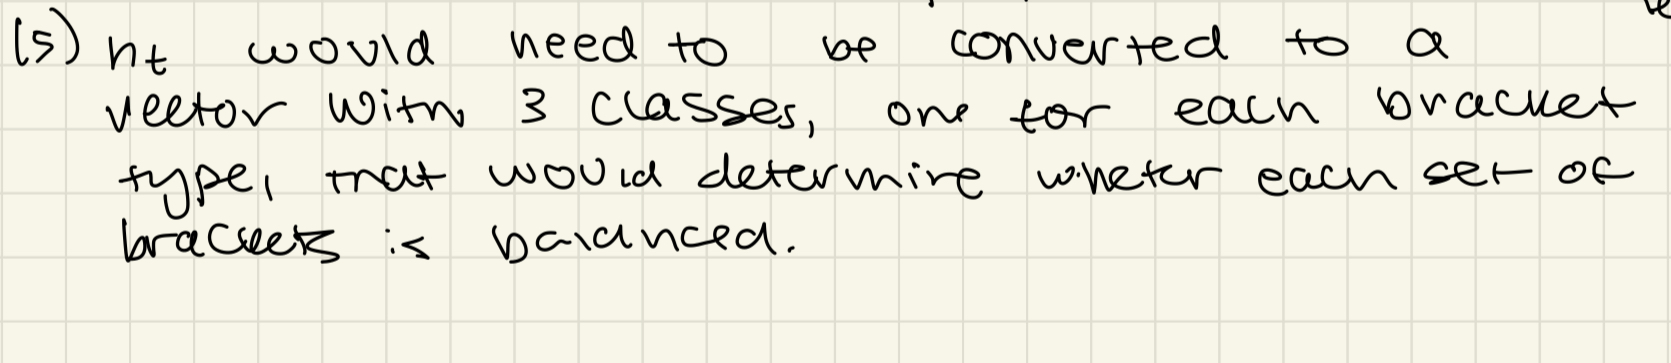 (5) ht would need to be converted to a
vector with 3 classes, one for each bracket
type, that would determine wheter each set of
brackets is balanced.